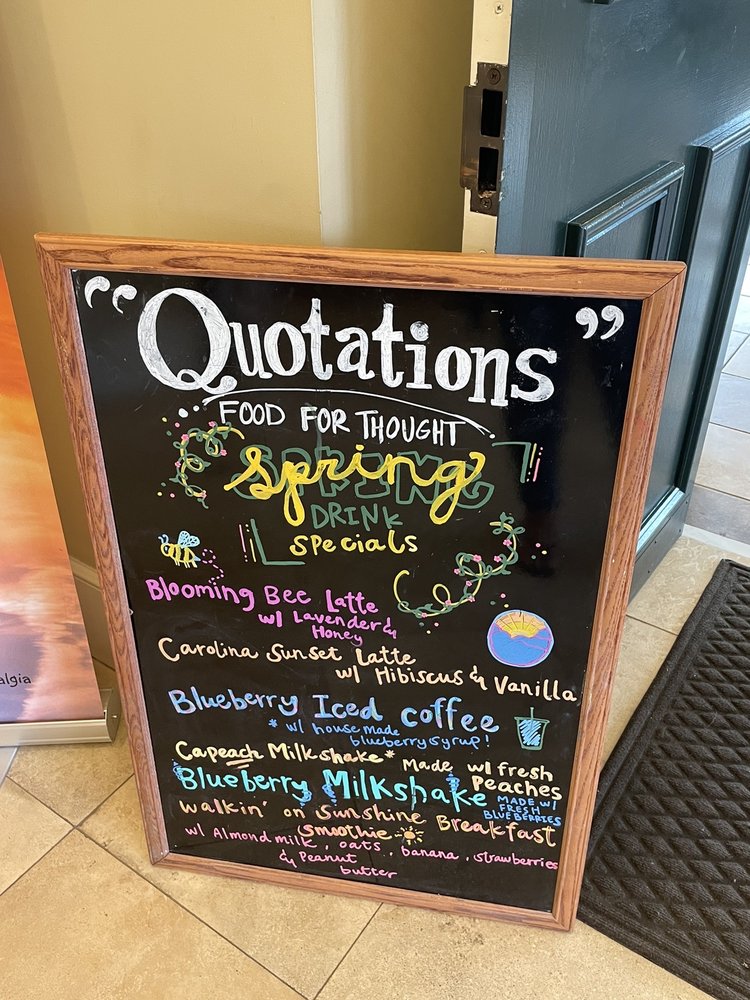 “Quotations”
FOOD FOR THOUGHT
Spring
DRINK
Specials
Blooming Bee Latte
w/ Lavender &
Honey
Carolina Sunset Latte
w/ Hibiscus & Vanilla
Blueberry Iced coffee
* w/ house made
blueberry syrup!
Capeach Milkshake* Made w/ fresh
Peaches
Blueberry Milkshake
MADE W/
FRESH
BLUEBERRIES
Walkin' on Sunshine Breakfast
Smoothie
w/ Almond milk, oats, banana, strawberries
& Peanut
butter
algia